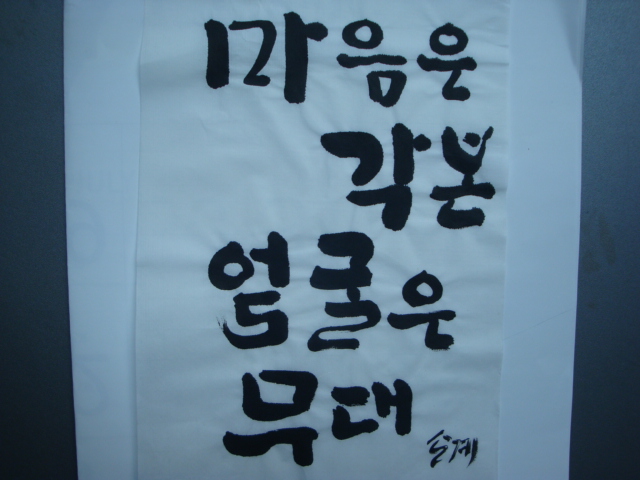 마음은
각본
얼굴은
무대